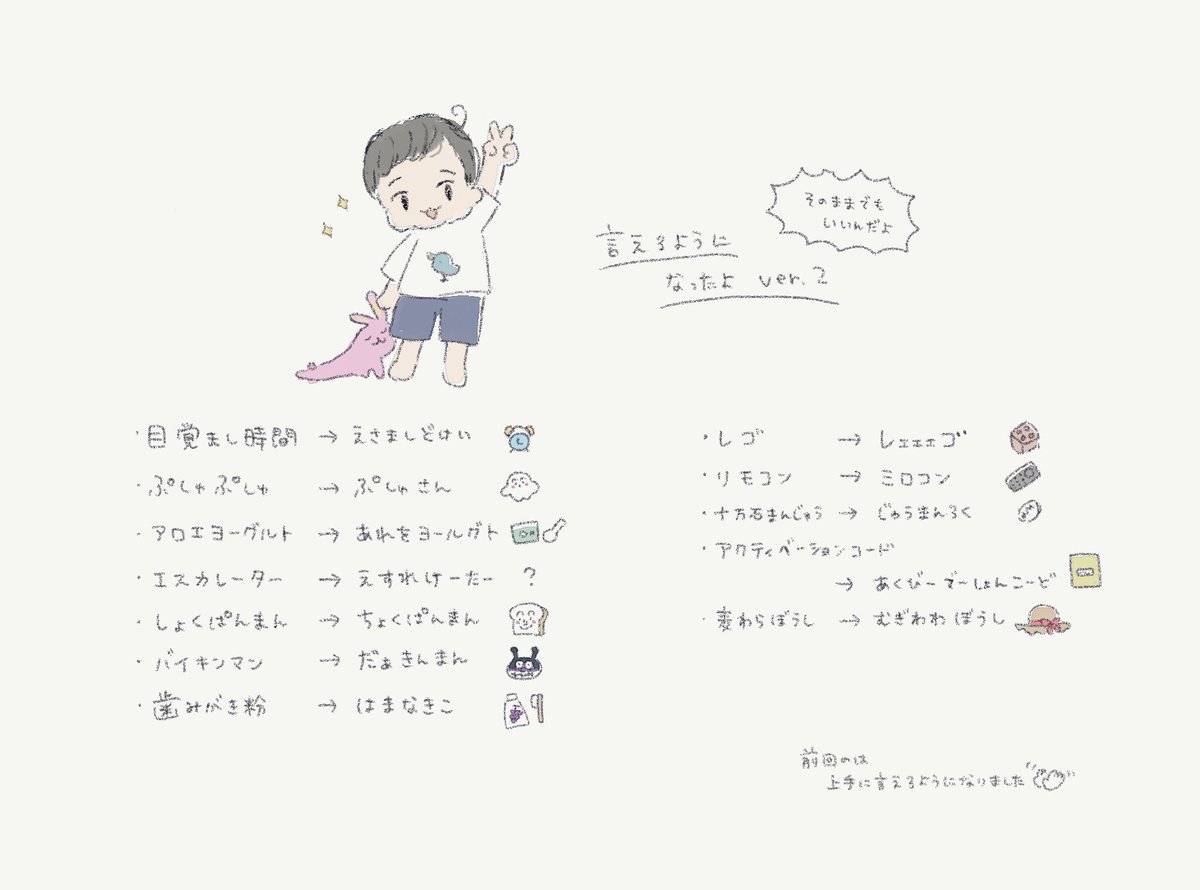 言えるように
なったよ ver.2
そのままでも
いいんだよ
・目覚まし時間 → えさましどけい
・ぷしゅぷしゅ → ぷしゅさん
・アロエヨーグルト → あれをヨールガト
・エスカレーター → えすれけーたー ?
・しょくぱんまん → ちょくぱんまん
・バイキンマン → だぁきんまん
・歯みがき粉 → はまなきこ
・レゴ → レェェェゴ
・リモコン → ミロコン
・十万石まんじゅう → じゅうまんろく
・アクティベーションコード
→ あくびーでーしょんこーど
・麦わらぼうし → むぎわわぼうし
前回のは
上手に言えるようになりました